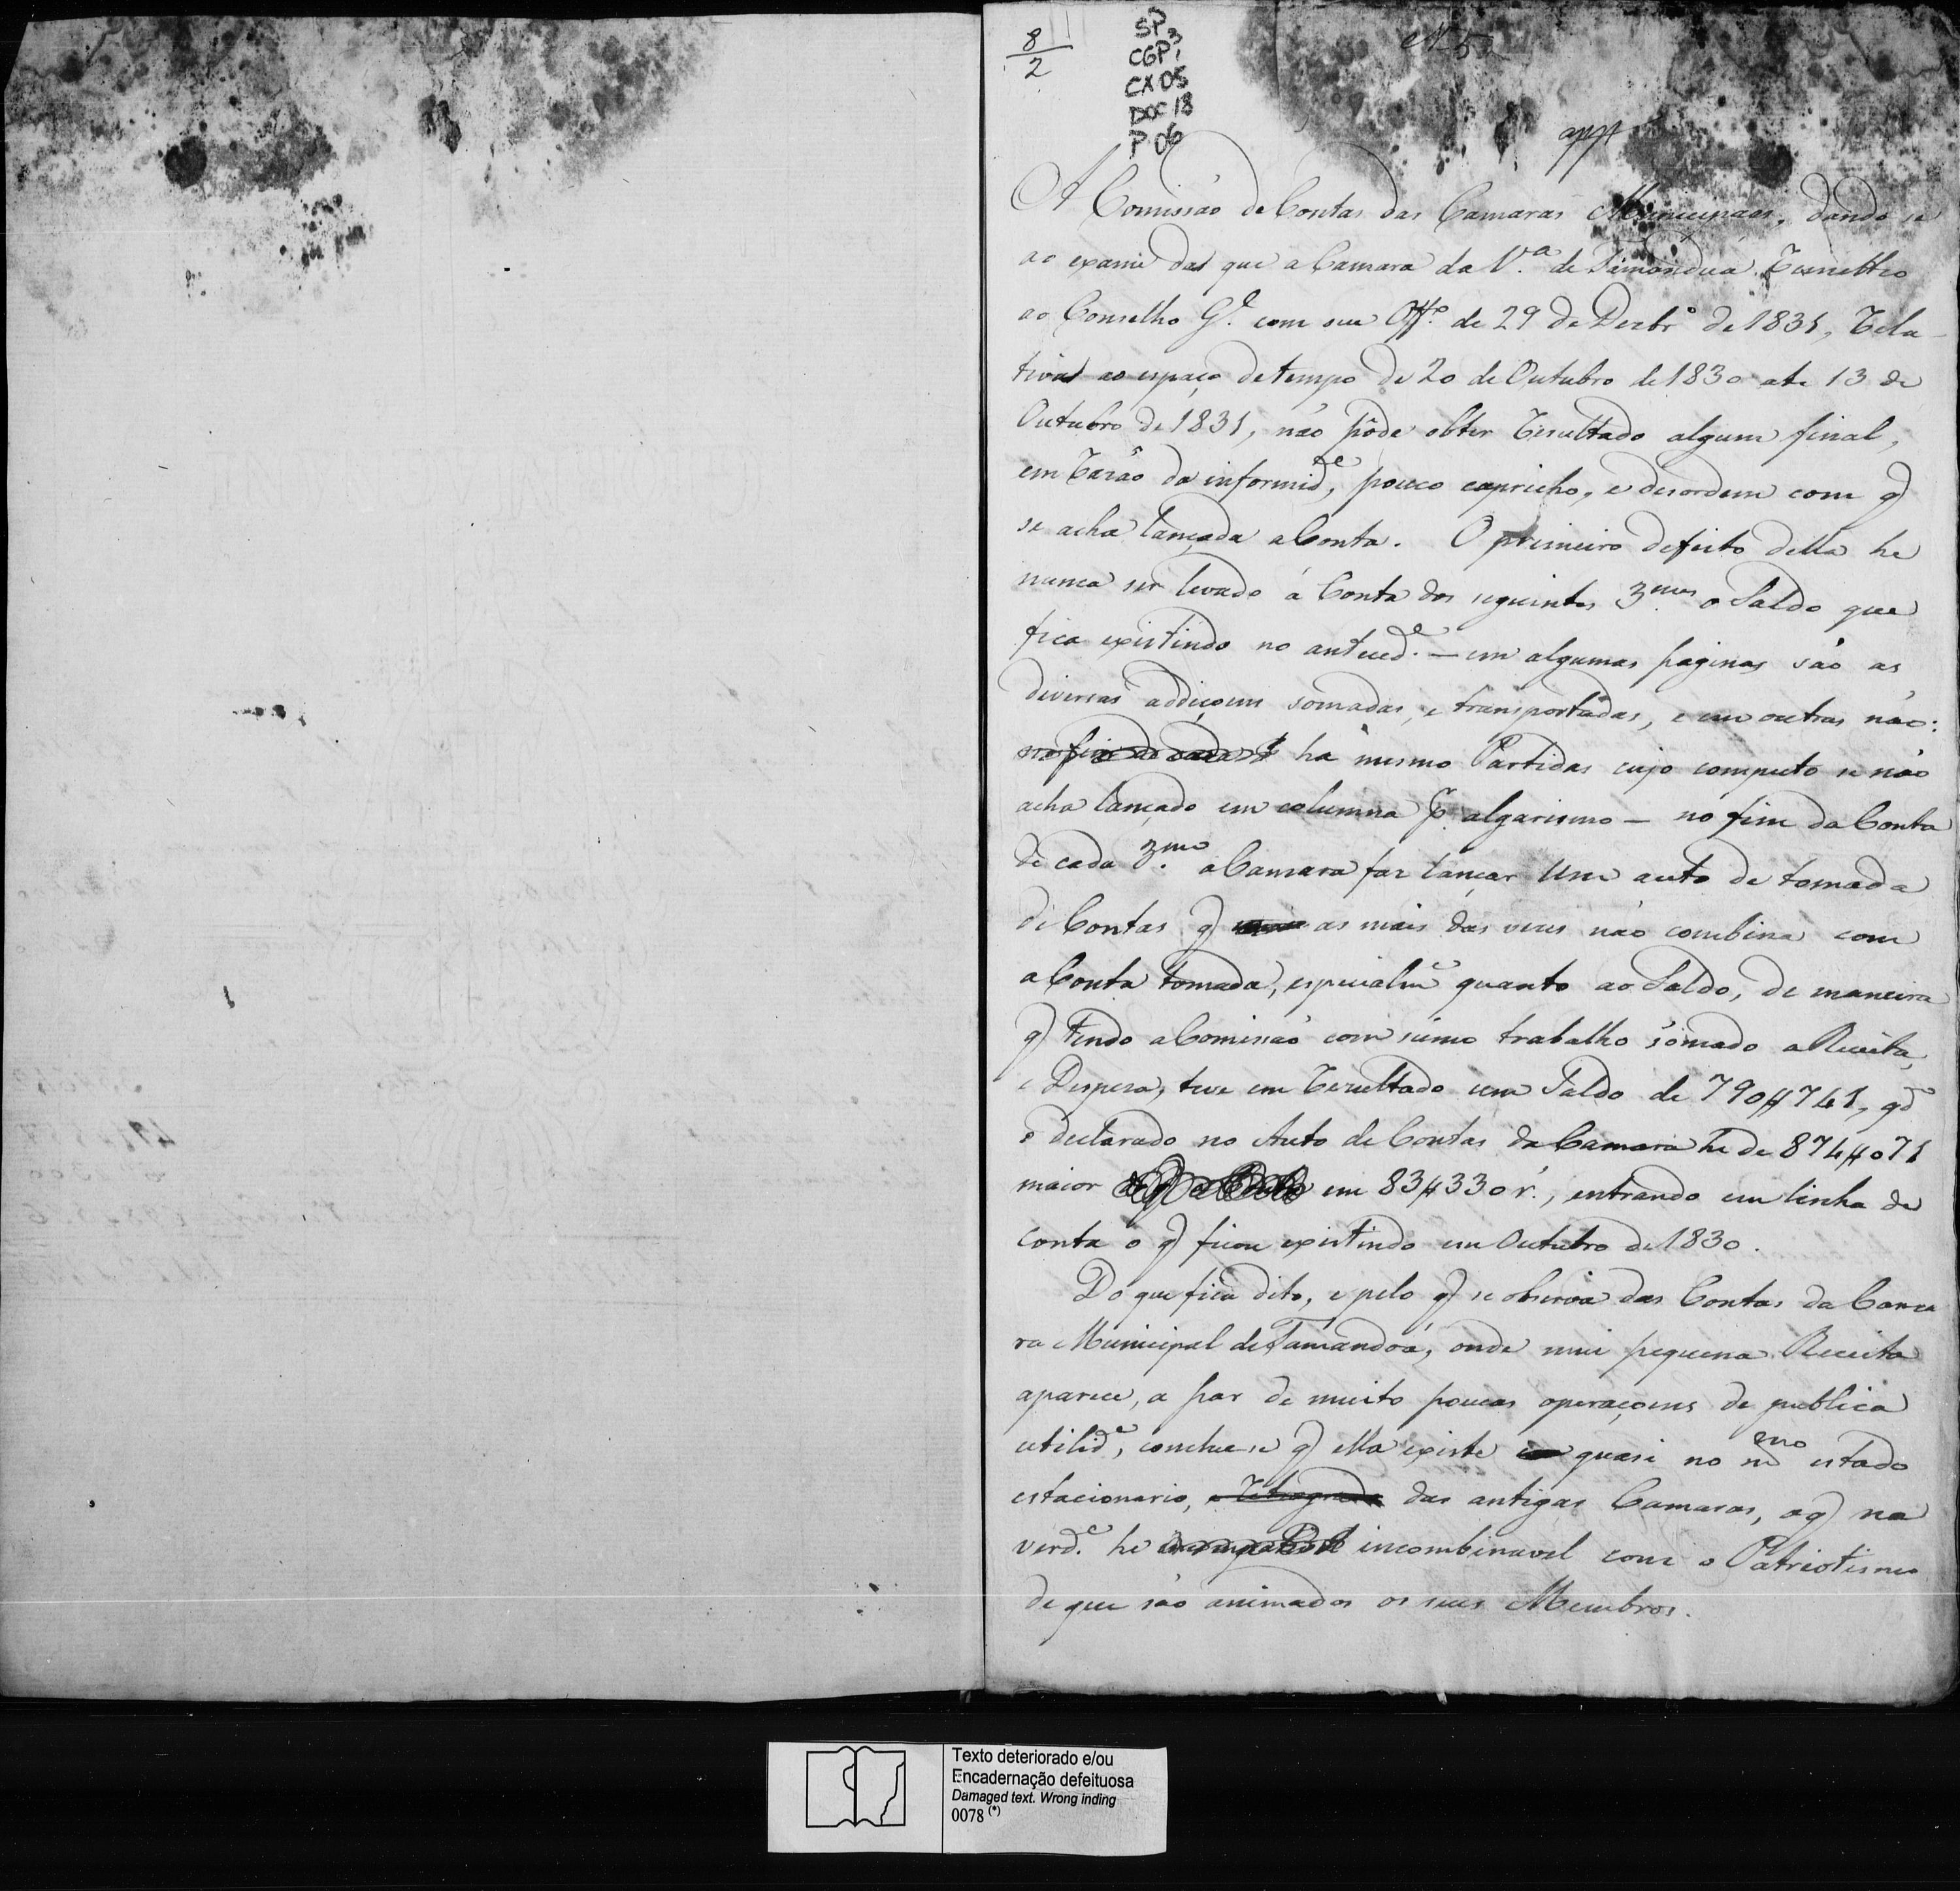 8/2
SP
CGP 3,
CX 05
DOC 18
P. 06
N 5
app
A Comissão de Contas das Camaras Municipaes, dando se
ao exame das que a Camara da V.ª de Tamandua remetteo
ao Conselho G.l com seu Off.º de 29 de Dezbr.º de 1831, rela-
tivas ao espaço de tempo de 20 de Outubro de 1830 ate 13 de
Outubro de 1831, não pôde obter resultado algum final,
em razão da informid.e, pouco capricho, e desordem com q
se acha lançada a Conta. O primeiro defeito della he
nunca ser levado á Conta dos seguintes 3.mes o Saldo que
fica existindo no anteced.e — em algumas paginas são as
diversas addiçoens somadas, e transportadas, e em outras não:
no fim de cada ha mesmo Partidas cujo computo se não
acha lançado em columna p. algarismo — no fim da Conta
de cada 3.me a Camara faz lançar um auto de tomada
de Contas q as mais das vezes não combina com
a Conta tomada, especialm.e quanto ao Saldo, de maneira
q tendo a Comissão com sumo trabalho sómado a Receita,
e Despeza, teve em rezultado um Saldo de 790#741, qd.o
o declarado no Auto de Contas da Camara he de 874#071
maior em 83#330 r., entrando em linha de
conta o q ficou existindo em Outubro de 1830.
Do que fica dito, e pelo q se observa das Contas da Cama
ra Municipal de Tamandoá, onde mui pequena Receita
aparece, a par de muito poucas operaçoens de publica
utilid.e, conclue se q ella existe quasi no m.mo estado
estacionario, e retrogrado das antigas Camaras, o q na
verd.e he incombinavel com o Patriotismo
de que são animados os seus Membros.
Texto deteriorado e/ou
Encadernação defeituosa
Damaged text. Wrong inding
0078 (*)